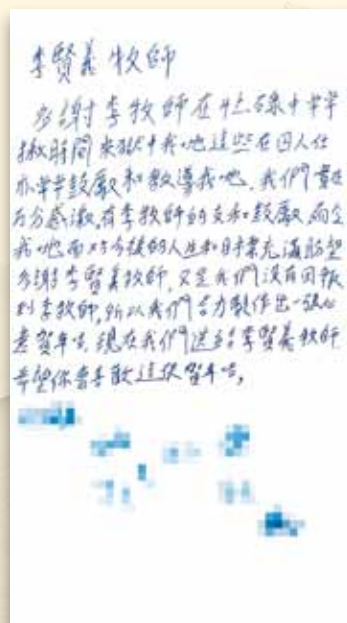 李賢義牧師
多謝李牧師在忙碌中常常
抽時間來獄中我哋這些在囚人仕
亦常常鼓勵和教導我哋，我們實在
万分感激，有李牧師的支和鼓勵，而令
我哋面对今後的人生和日子業充滿盼望
多謝李賢義牧師，又是我們沒有回報
到李牧師，所以我們合力製作出一張心
意賀年咭，現在我們送給李賢義牧師
希望你會喜歡這張賀年咭，